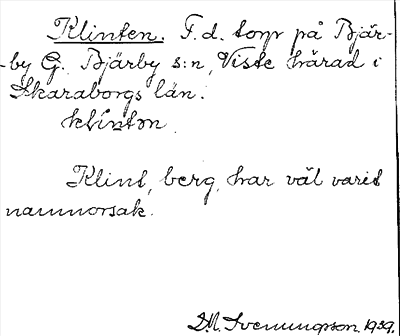 Klinten. F. d. torp på Bjär-
by G. Bjärby s:n, Viste härad i
Skaraborgs län.
klíntən
Klint, berg, har väl varit
namnorsak.
D.A. Svenungson. 1939.